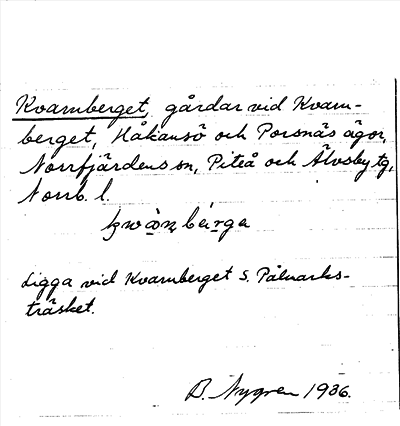 Kvarnberget, gårdar vid Kvarn-
berget, Håkansö och Porsnäs ägor,
Norrfjärdens sn, Piteå och Älvsby tg,
Norrb. l.
Ligga vid Kvarnberget S. Pålmarks-
träsket.
B. Nygren 1936.